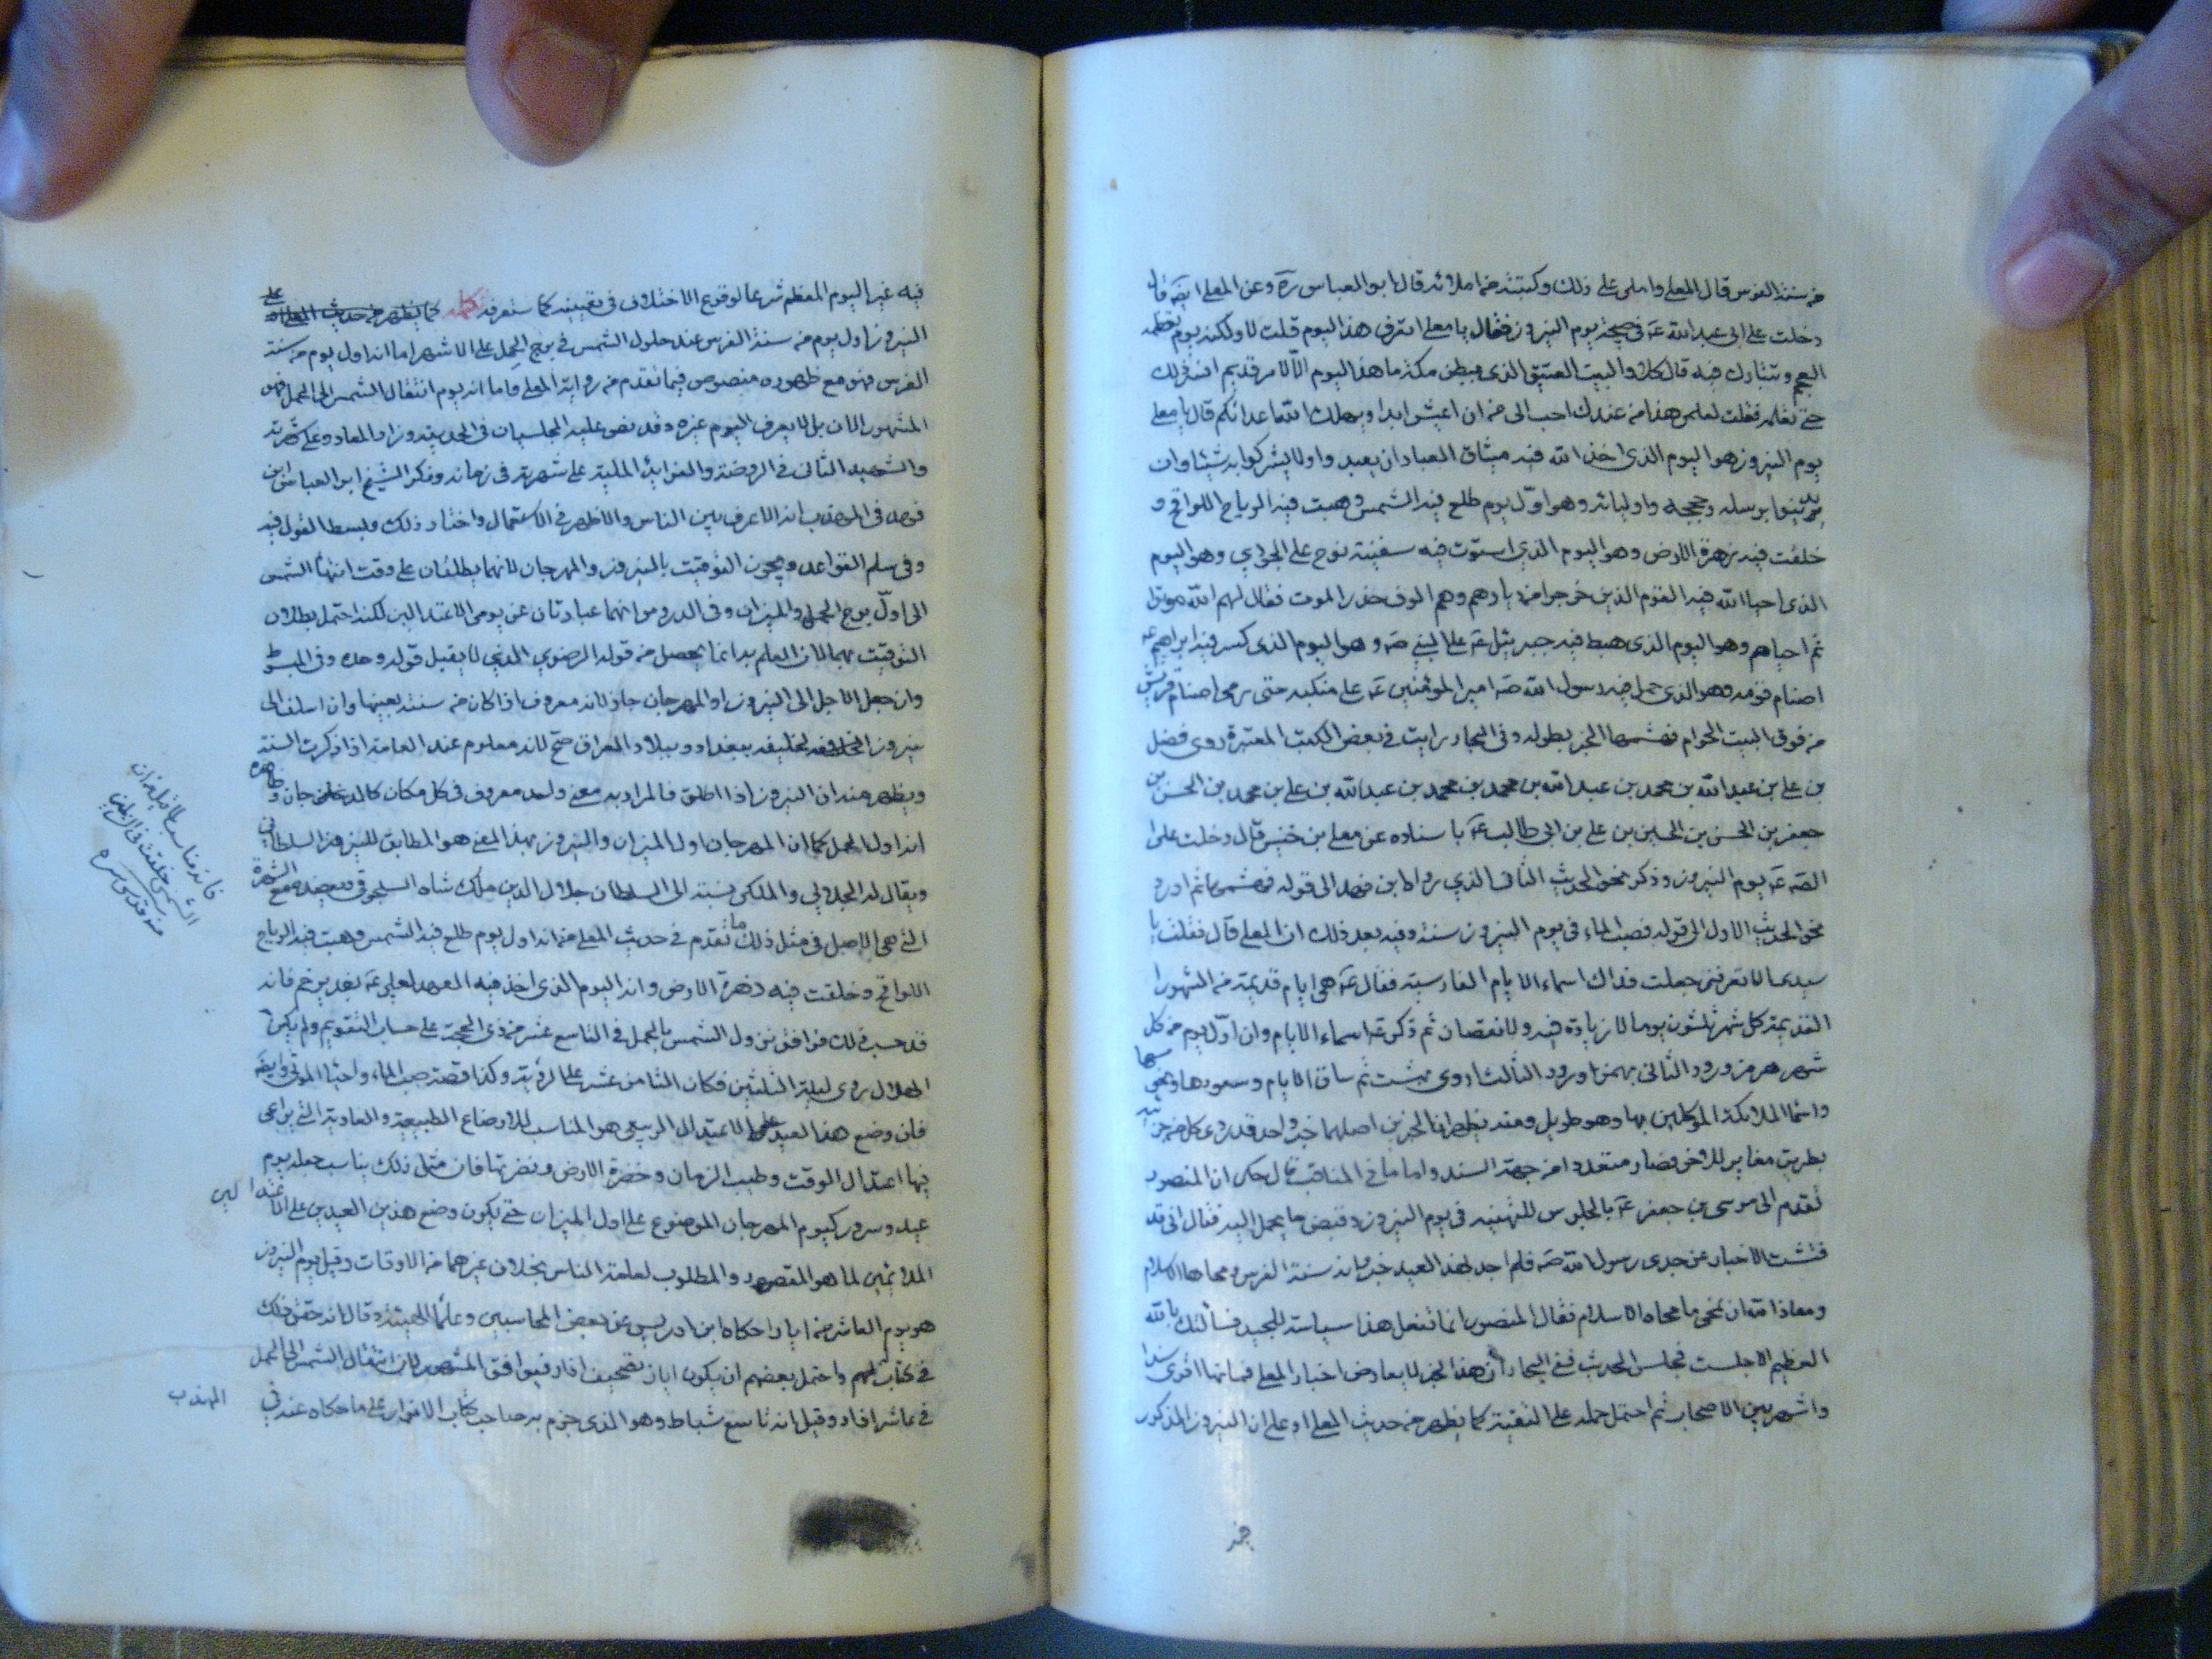 من سنة الفرس قال المعلى واملى على ذلك وكتبته من املائه قال ابو العباس ره وعن المعلى ايضا قال
دخلت على ابى عبد الله ع فى صبيحة يوم النيروز فقال يا معلى اتعرف هذا اليوم قلت لا ولكنه يوم تعظمه
العجم وتتبارك فيه قال كلا والبيت العتيق الذى ببطن مكة ما هذا اليوم الا لامر قديم افسره لك
حتى تعلمه فقلت لعلمى هذا من عندك احب الى من ان اعيش ابدا ويهلك الله اعدائكم قال يا معلى
يوم النيروز هو اليوم الذى اخذ الله فيه ميثاق العباد ان يعبدوه ولا يشركوا به شيئا وان
يدينوا برسله وحججه واوليائه وهو اول يوم طلع فيه الشمس وهبت فيه الرياح اللواقح و
خلقت فيه زهرة الارض وهو اليوم الذى استوت فيه سفينة نوح على الجودي وهو اليوم
الذى احيا الله فيه القوم الذين خرجوا من ديارهم وهم الوف حذر الموت فقال لهم الله موتوا
ثم احياهم وهو اليوم الذى هبط فيه جبرئيل ع على النبى ص وهو اليوم الذى كسر فيه ابراهيم ع
اصنام قومه وهو الذى حمل فيه رسول الله ص امير المؤمنين ع على منكبه حتى رمى اصنام قريش
من فوق البيت الحرام فهشمها الخبر بطوله وفى البحار رايت فى بعض الكتب المعتبرة روى فضل
بن على بن عبيد الله بن محمد بن عبد الله بن محمد بن محمد بن عبيد الله بن على بن محمد بن الحسن بن
جعفر بن الحسن بن الحسن بن على بن ابى طالب ع باسناده عن معلى بن خنيس قال دخلت على
الصه ع يوم النيروز وذكر نحو الحديث الثانى الذي رواه ابن فهد الى قوله فهشمها ثم اورد
نحو الحديث الاول الى قوله فصب الماء فى يوم النيروز سنة وفيه بعد ذلك ان المعلى قال فقلت يا
سيدى الا تعرفنى جعلت فداك اسماء الايام الفارسية فقال ع هى ايام قديمة من الشهور
القديمة كل شهر ثلثون يوما لا زيادة فيه ولا نقصان ثم ذكر ع اسماء الايام وان اول يوم من كل
شهر هرمز وروز الثانى بهمن وروز الثالث اردى بهشت ثم ساق الايام وسعودها ونحوسها
واسماء الملائكة الموكلين بها وهو طويل ومنه يظهر ان الخبرين اصلهما خبر واحد قد روى كل من جزئيه
بطريق مغاير للاخر فصار متعددا من جهة السند واما ما فى المناقب قال حكى ان المنصور
تقدم الى موسى بن جعفر ع بالجلوس للتهنية فى يوم النيروز وقبض ما يحمل اليه فقال انى قد
فتشت الاخبار عن جدى رسول الله ص فلم اجد لهذا العيد خبرا وانه سنة الفرس ومحاها الاسلام
ومعاذ الله ان نحيى ما محاه الاسلام فقال المنصور انما نفعل هذا سياسة للجند فسألتك بالله
العظيم الا جلست فجلس الحديث ففى البحار ان هذا الخبر لا يعارض اخبار المعلى فانها اقوى سندا
واشهر بين الاصحاب ثم احتمل حمله على التقية كما يظهر من حديث المعلى او على ان النيروز المذكور
فيه غير اليوم المعظم شرعا لوقوع الاختلاف فى تعيينه كما ستعرفه كما يظهر من حديث المعلى على
النيروز اول يوم من سنة الفرس عند حلول الشمس في برج الحمل على الاشهر اما انه اول يوم من سنة
الفرس فهو مع ظهوره منصوص فيما تقدم من رواية المعلى واما انه يوم انتقال الشمس الى الحمل فهو
المشهور الان بل لا يعرف اليوم غيره وقد نص عليه المجلسيان فى الحديقة وزاد المعاد وعلى شهرته
والشهيد الثانى في الروضة والفوائد الملية على شهرته فى زمانه وذكر الشيخ ابو العباس بن
فهد فى المهذب انه الاعرف بين الناس والاظهر فى الاستعمال واختار ذلك وبسط القول فيه
وفى سلم القواعد ويجوز التوقيت بالنيروز والمهرجان لانهما يطلقان على وقت انتهاء الشمس
الى اول برج الحمل والميزان وفى الدروس انهما عبارتان عن يومى الاعتدالين لكنه احتمل بطلان
التوقيت بهما لان العلم به انما يحصل من قوله الرصدي الذي لا يقبل قوله وحده وفى المبسوط
وان جعل الاجل الى النيروز او المهرجان جاز لانه معروف اذا كان من سنة بعينها وان اسلف الى
نيروز الخليفة ببغداد وبلاد العراق صح لانه معلوم عند العامة اذا ذكرت السنة
ويظهر منه ان النيروز اذا اطلق فالمراد به معنى واحد معروف فى كل مكان كالمهرجان وظاهره
انه اول الحمل كما ان المهرجان اول الميزان والنيروز بهذا المعنى هو المطابق للنيروز السلطانى
ويقال له الجلالي والملكى نسبة الى السلطان جلال الدين ملك شاه السلجوقى ويعضده مع الشهرة
التى هى الاصل فى مثل ذلك ما تقدم في حديث المعلى من انه اول يوم طلع فيه الشمس وهبت فيه الرياح
اللواقح وخلقت فيه زهرة الارض وانه اليوم الذى اخذ فيه العهد لعلى ع بغدير خم فانه
قد حسب ذلك فوافق نزول الشمس بالحمل فى التاسع عشر من ذى الحجة على حساب التقويم ولم يكن
الهلال رءى ليلة الثلثين فكان الثامن عشر على الرؤية وكذا قصة صب الماء واحيا الموتى وايضا
فان وضع هذا العيد على الاعتدال الربيعى هو المناسب للاوضاع الطبيعية والعادية التى يراعى
فيها اعتدال الوقت وطيب الزمان وخضرة الارض ونضرتها فان مثل ذلك يناسب جعله يوم
عيد وسرور كيوم المهرجان الموضوع على اول الميزان حتى يكون وضع هذين العيدين على الاعتدالين
الملائمين لما هو المقصود والمطلوب لعامة الناس بخلاف غيرهما من الاوقات وقيل يوم النيروز
هو يوم العاشر من ايار حكاه ابن ادريس عن بعض المحاسبين وعلماء الهيئة وقال انه حقق ذلك
في كتاب لهم واحتمل بعضهم ان يكون ايار تصحيف اذار فيوافق المشهور لان انتقال الشمس الى الحمل
فى عاشر اذار وقيل انه تاسع شباط وهو الذى جزم به صاحب كتاب الانوار على ما حكاه عنه فى
المهذب
فانه مناسب لما قيل ان
الشمس خلقت فى الشرطين